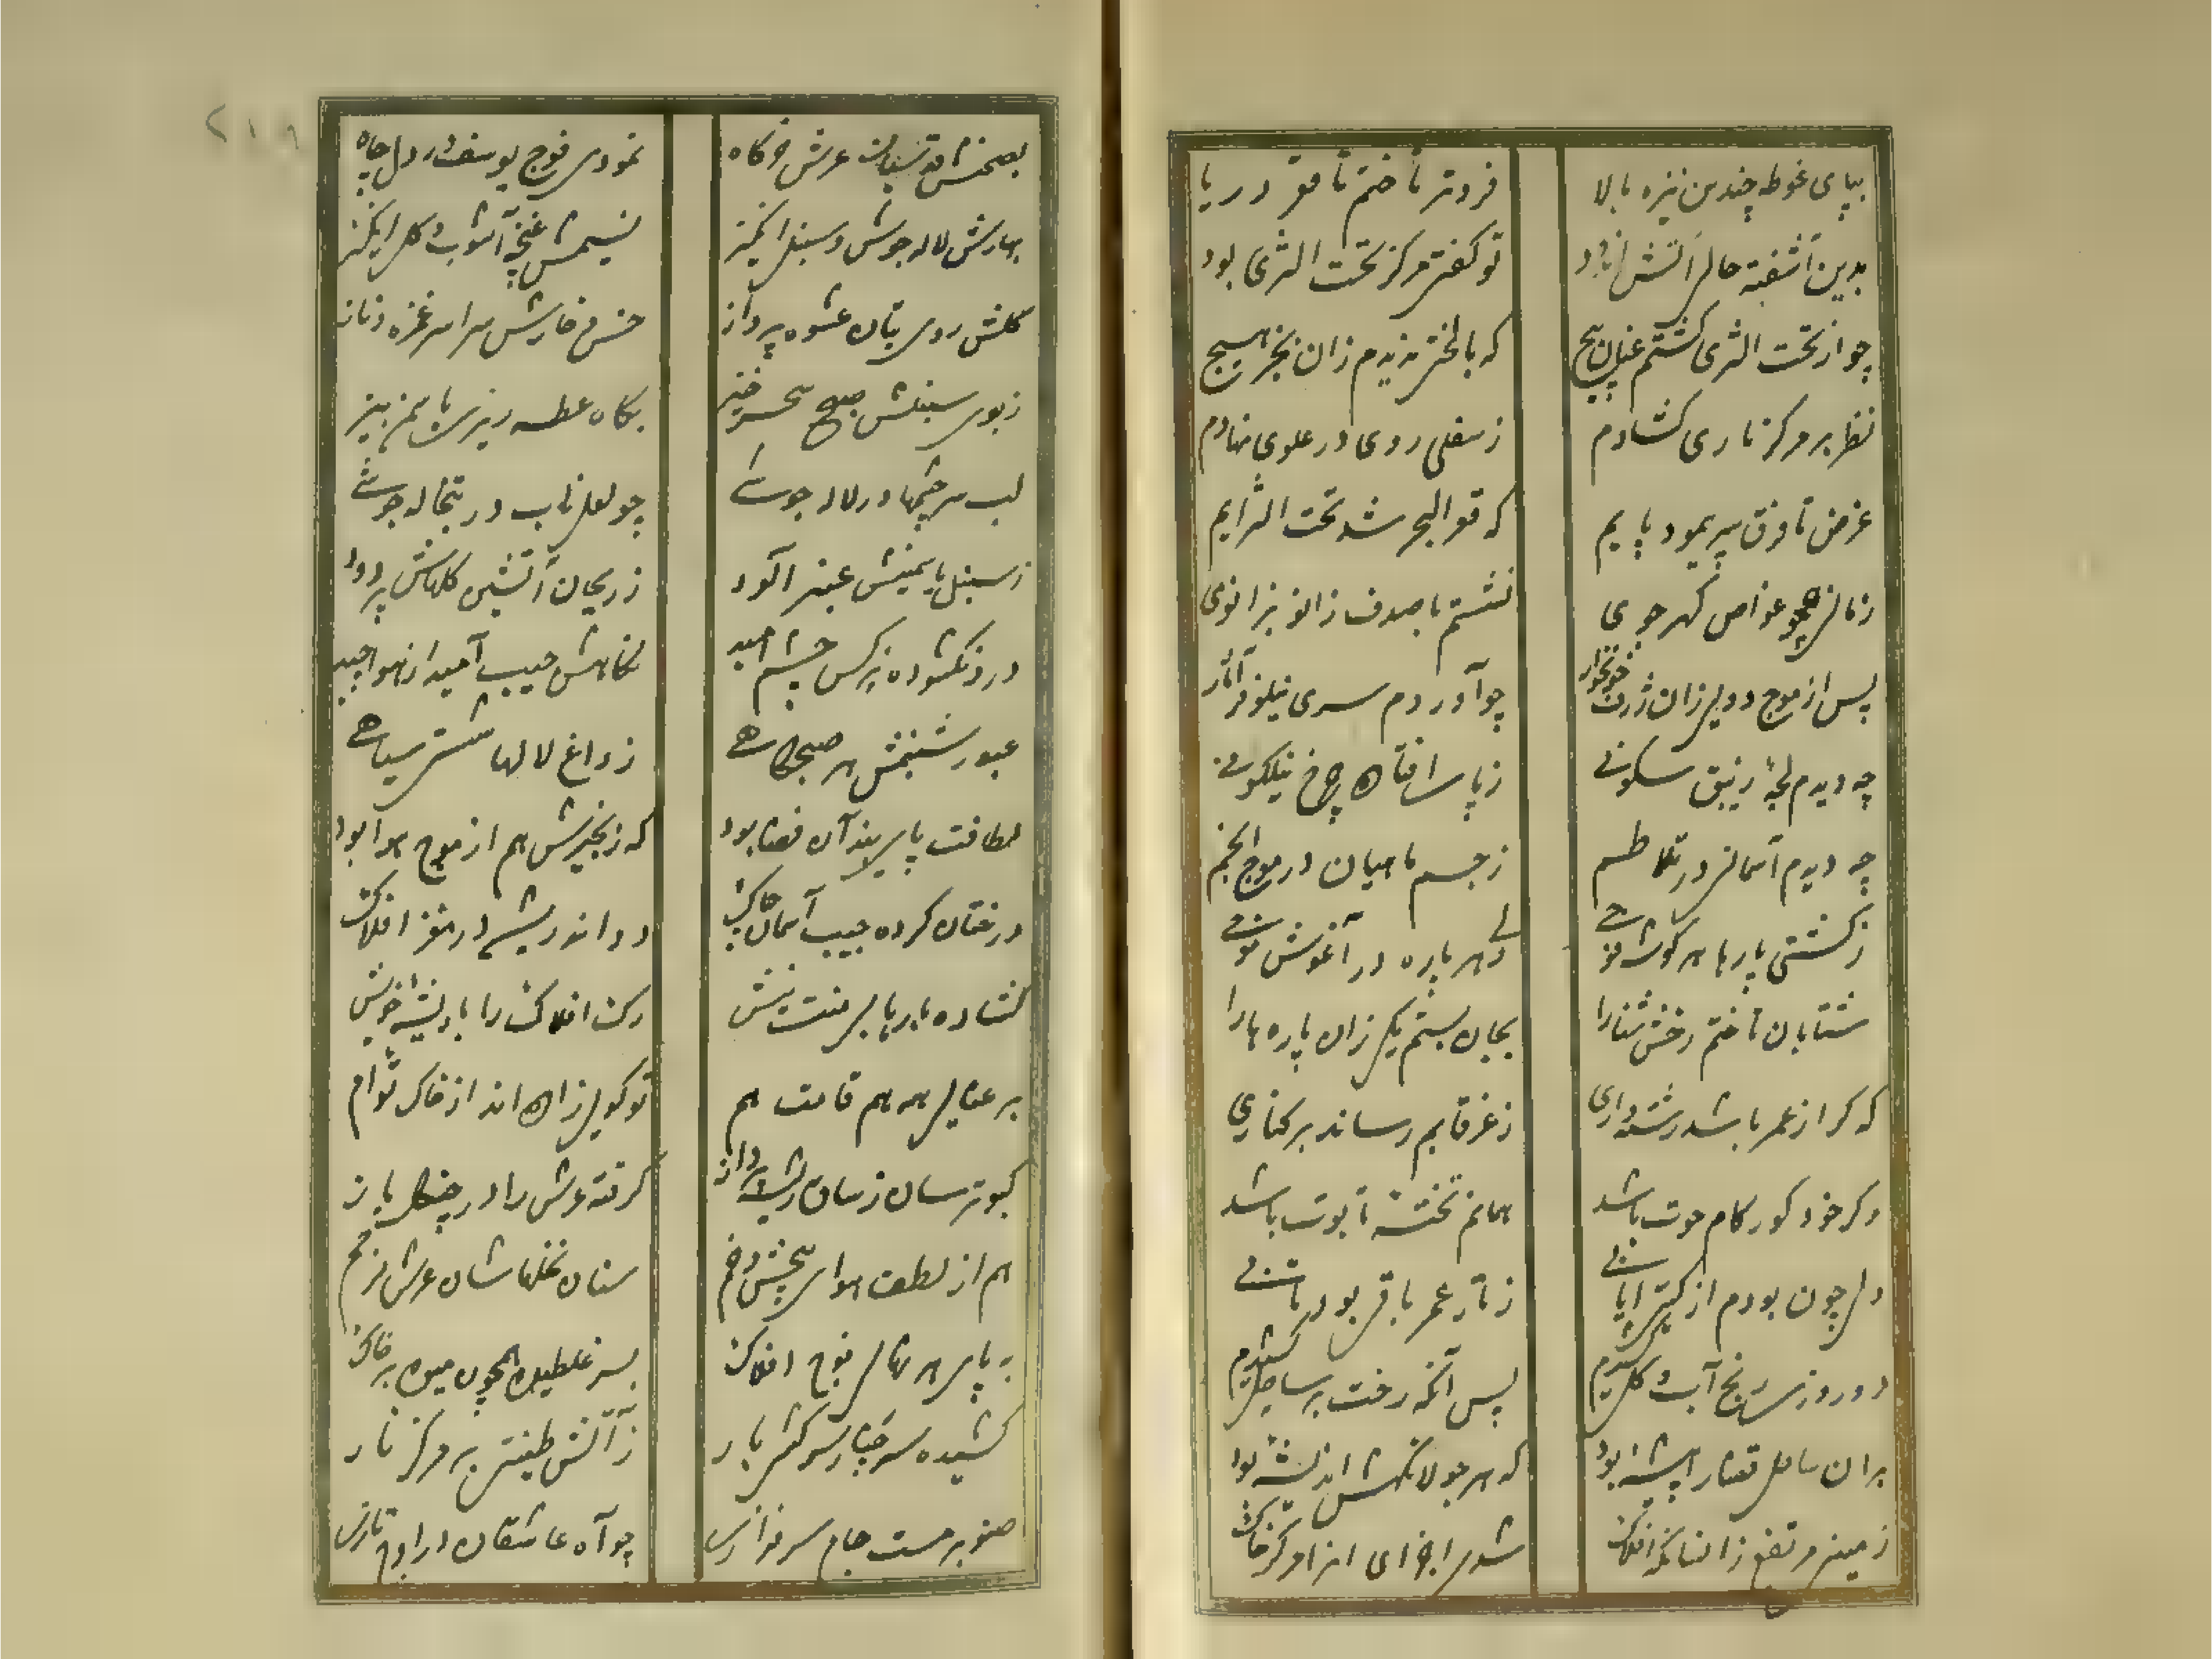 بپای غوطه چندین نیزه بالا
فروتر تاختم تا قعر دریا
بدین آشفته حالی
تو گفتی مرکز تحت الثری بود
چو از تحت الثری گشتم عنان پیچ
که بالختی ندیدم زان بجز هیچ
نظر بر مرکز ناری گشادم
ز سفلی روی در علوی نهادم
غرض تا فوق می پیمود پایم
که قعر البحر شد تحت الثرایم
زمانی همچو غواص گهر جوی
نشستم با صدف زانو بزانوی
پس از موج دویی زان ژرف خونخوار
چو آوردم سری نیلوفر آثار
چه دیدم لجهٔ زیبق سکونی
ز پا افتاده چرخ نیلگونی
چه دیدم آسمانی در تلاطم
ز جسم ماهیان در موج انجم
ز کشتی پارها هر گوشه فوجی
ولی هر پاره در آغوش موجی
شتابان تاختم رخش شنا را
بجان بستم یکی زان پاره ها را
که گر از عمر باشد رشته داری
ز غرقابم رساند بر کناری
وگر خود گور کام حوت باشد
همانم تختهٔ تابوت باشد
ولی چون بودم از گیتی
ز تار عمر باقی بود
دو روزی رنج آب
پس آنگه رخت بر ساحل کشیدم
بران ساحل قضا را بیشه بود
که هر جولانگهش اندیشه بود
زمینی مرتفع زانسانکه افلاک
شدی اجزای از مرکز خاک
بصحنش قدسیان عرش خرگاه
نمودی فوج یوسف در دل چاه
بهارش لاله جوش و سنبل انگیز
نسیمش غنچه آشوب و گل انگیز
گلش روی بتان عشوه پرداز
خس و خارش سراسر غمزه و ناز
ز بوی سنبلش صبح سحر خیز
بگاه عطسه ریزی یاسمن بیز
لب سر چشمها در لاله جوشی
چو لعل ناب در تبخاله جوشی
ز سنبل یاسمینش عنبر آلود
ز ریحان آتشین گلهاش پر دود
درو نگشوده نرگس چشم امید
نگاهش جیب آمید از هوا چید
عبور شبنمش هر صبحگاهی
ز داغ لالها شستی سیاهی
لطافت پای بند آن فضا بود
که زنجیرش هم از موج هوا بود
درختان کرده جیب آسمان چاک
دوانده ریشه در مغز افلاک
گشاده
رگ افلاک را با ریشهٔ خویش
به رعنایی همه هم قامت هم
تو گویی زاده اند از خاک توام
کبوترسان ز ساق ریشه پرداز
گرفته عرش را در چنگل باز
هم از لطف هوا
سنان نخلهاشان عرش را
به پای هر نهالی فوج افلاک
بسر غلطیده همچون میوه بر خاک
کشیده سر چنار سرکش یار
ز آتش طینتی بر مرکز نار
صنوبر مست جام سرفرازی
چو آه عاشقان در اوج تازی